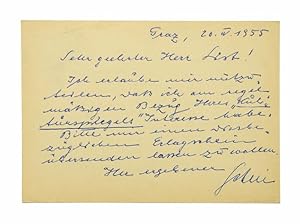 Graz, 20. V. 1955
Sehr geehrter Herr List!
Ich erlaube mir mitzu-
teilen, daß ich am regel-
mäßigen Bezug Ihres "Kul-
turspiegels" Interesse habe.
Bitte mir einen diesbe-
züglichen Erlagschein
übersenden lassen zu wollen.
Ihr ergebener